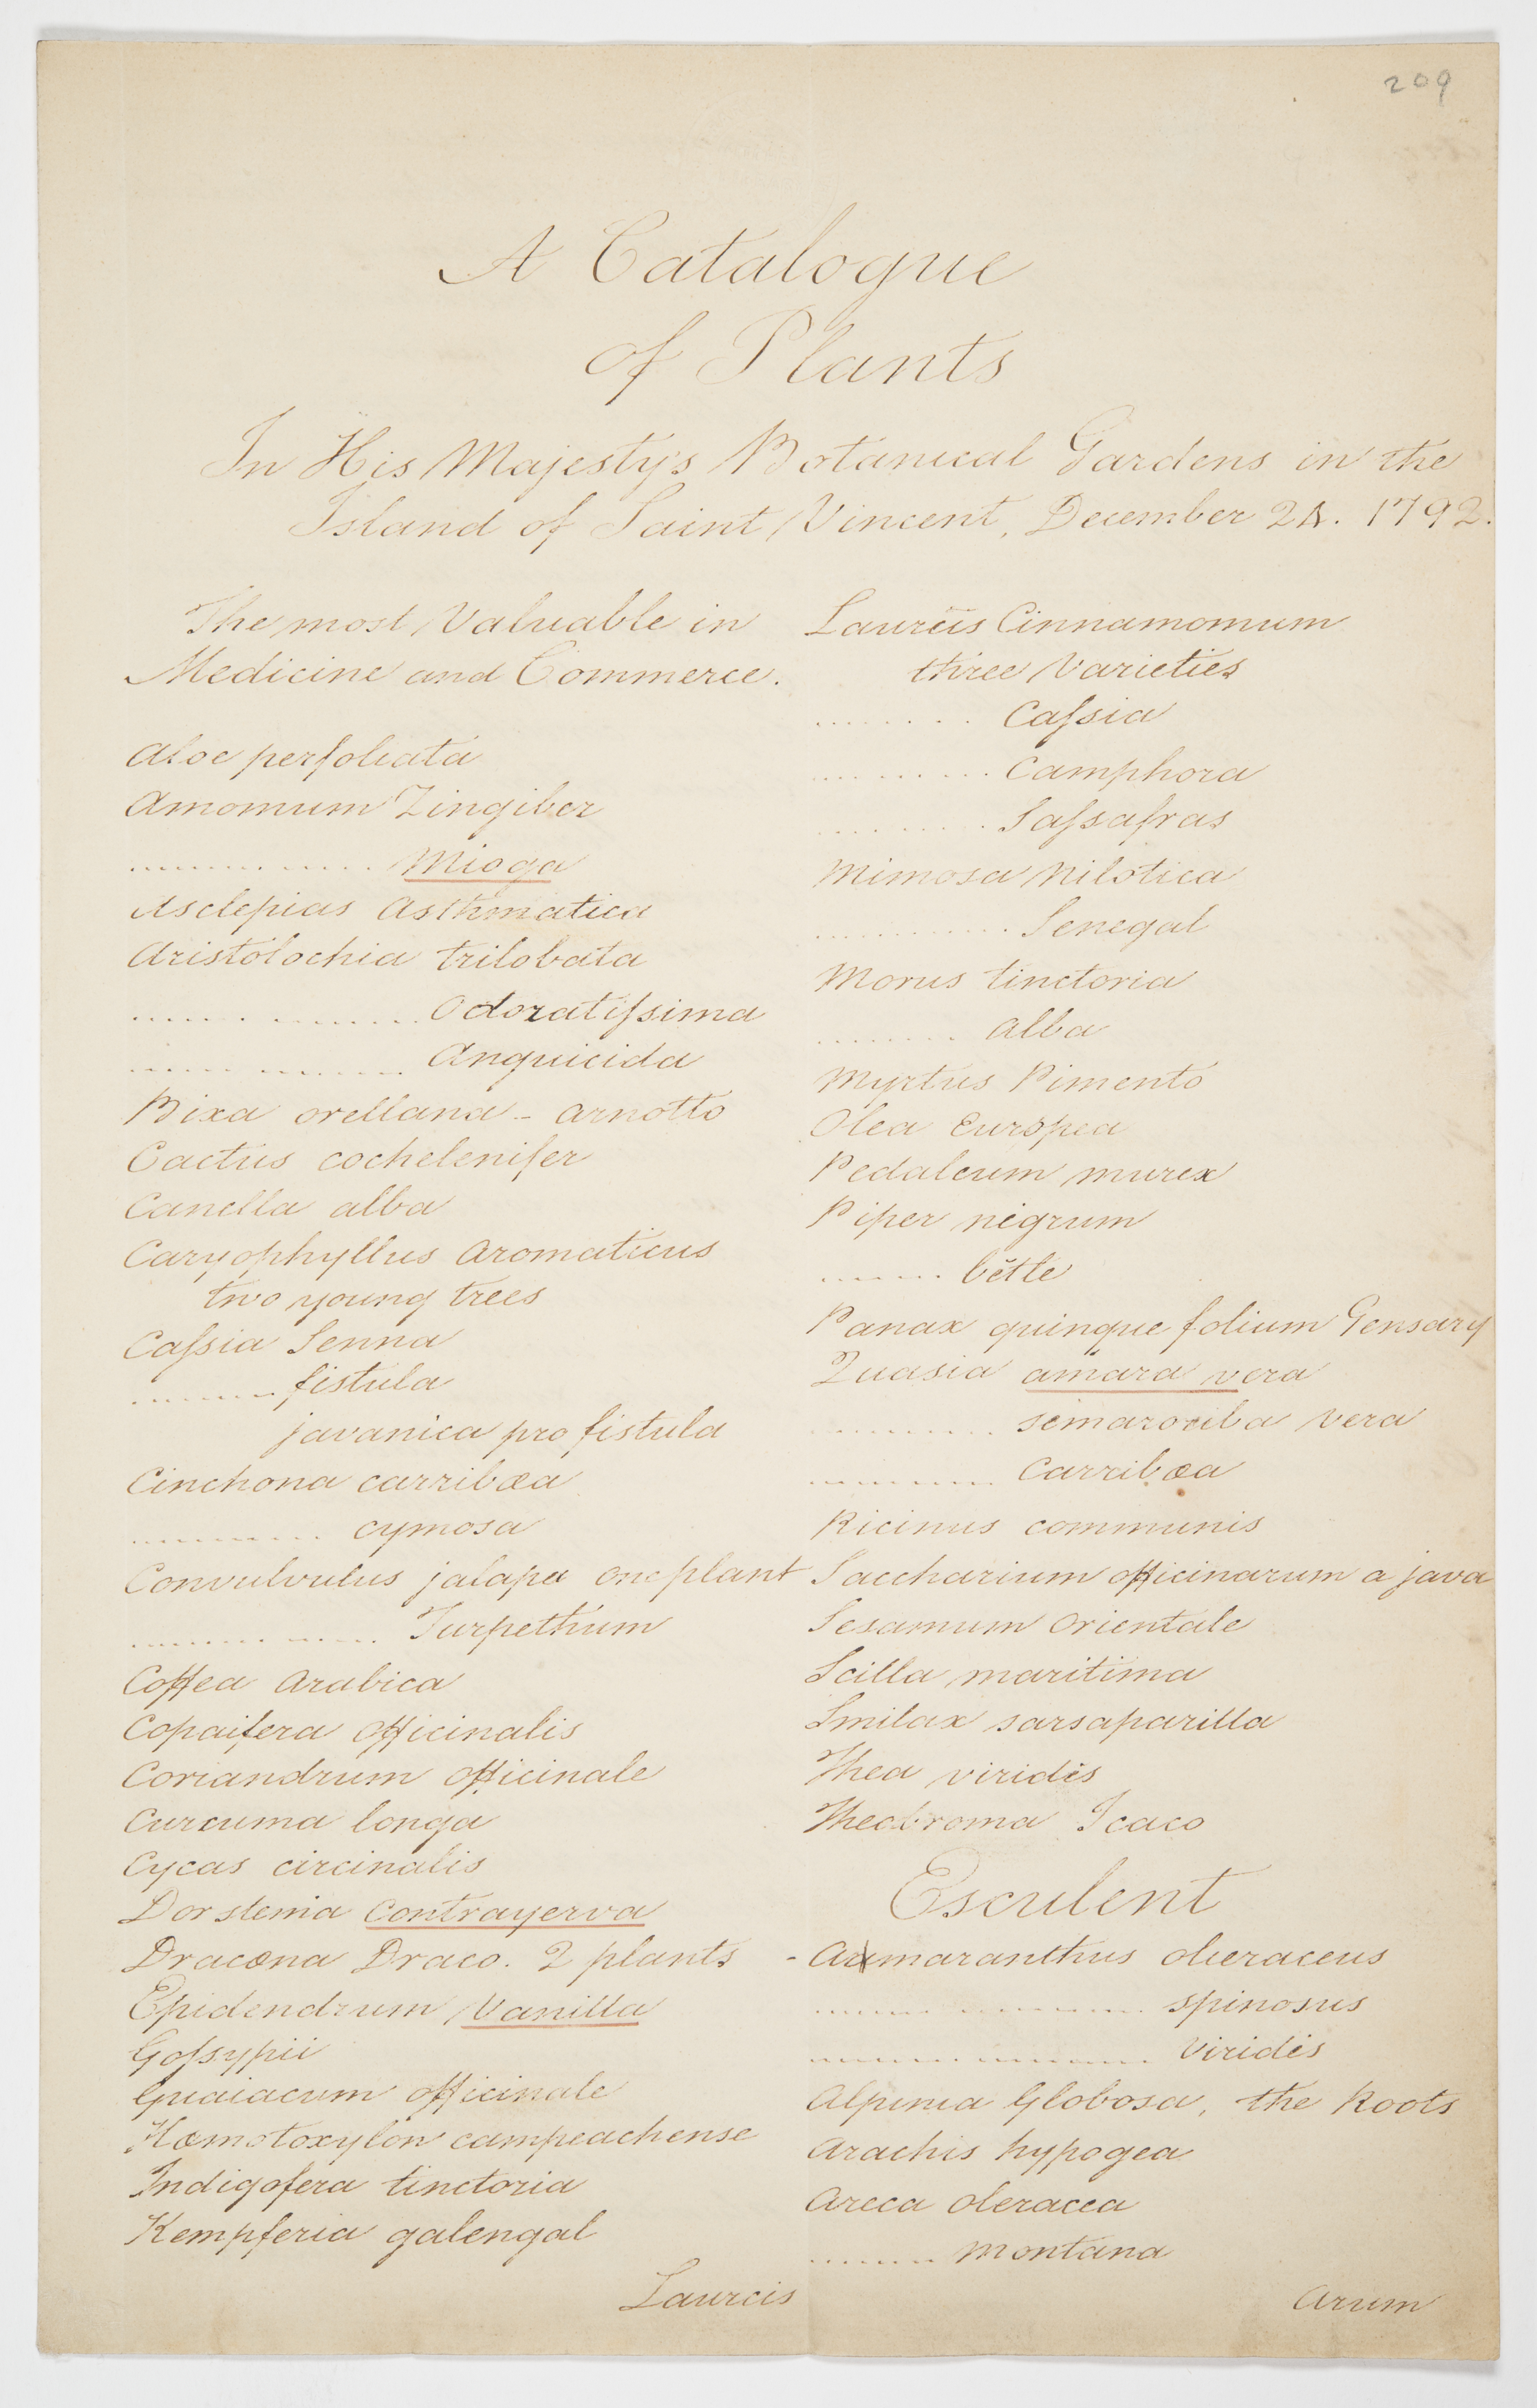 209
A Catalogue
of Plants
In His Majesty's Botanical Gardens in the
Island of Saint Vincent, December 24. 1792.
The most Valuable in
Medicine and Commerce.
Aloe perfoliata
Amomum Zingiber
........ .... Mioga
Asclepias Asthmatica
Aristolochia trilobata
...... . .......Odoratiſsima
..... ...... Anguicida
Bixa orellana - arnotto
Cactus cochelenifer
Canella alba
Caryophyllus Aromaticus
two young trees
Caſsia Senna
....... fistula
javanica pro fistula
Cinchona carribœa
........ cymosa
Convulvulus jalapa one plant
........ .... Turpethum
Coffea Arabica
Copaifera Officinalis
Coriandrum Officinale
Curcuma longa
Cycas circinalis
Dorstenia Contrayerva
Dracœna Draco. 2 plants
Epidendrum Vanilla
Goſsypii
Guaiacum officinale
Hœmotoxylon campeachense
Indigofera tinctoria
Kempferia galengal
Laurus
Laurus Cinnamomum
three Varieties
........ Caſsia
......... Camphora
......... Saſsafras
Mimosa Nilotica
........... Senegal
Morus tinctoria
........ alba
Myrtus Pimento
Olea Europea
Pedaleum murex
Piper nigrum
....... bĕtle
Panax quinque folium Gensary
Quasia amara vera
......... simarouba vera
......... Carribœa
Ricinus communis
Saccharium officinarum a java
Sesamum Orientale
Scilla maritima
Smilax sarsaparilla
Thea viridis
Theobroma Icaco
Esculent
- Amaranthus oleraceus
...... ....... spinosus
........ ....... Viridis
Alpinia Globosa, the Roots
Arachis hypogea
Areca oleracea
....... montana
Arum